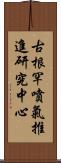 古根罕噴氣推
進研究中心